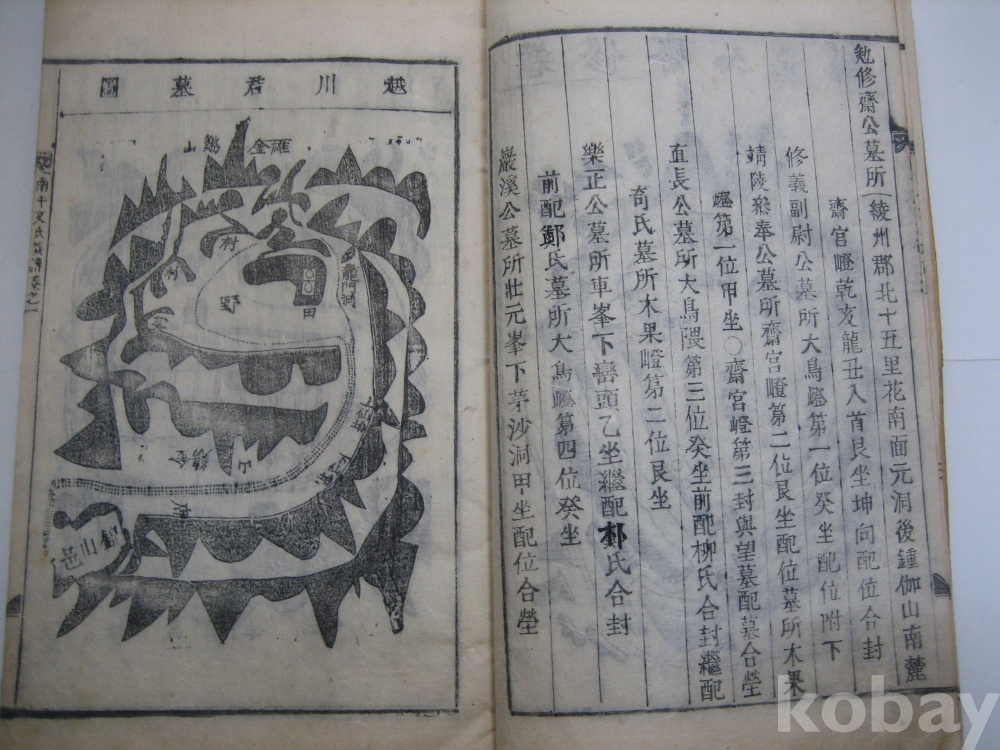 勉修齋公墓所綾州郡北十五里花南面元洞後鍾伽山南麓
齋宮嶝乾亥龍丑入首艮坐坤向配位合封
修義副尉公墓所大鳥嶝第一位癸坐配位附下
靖陵叅奉公墓所齋宮嶝第二位艮坐配位墓所木果
嶝第一位甲坐○齋宮嶝第三封與望墓配墓合塋
直長公墓所大鳥隈第三位癸坐前配柳氏合封繼配
奇氏墓所木果嶝第二位艮坐
樂正公墓所車峯下巒頭乙坐繼配朴氏合封
前配鄭氏墓所大鳥嶝第四位癸坐
巖溪公墓所壯元峯下茅沙洞甲坐配位合塋
越川君墓圖
羅金鷄山
村
村
野
田
山
金鷄
山邑
kobay